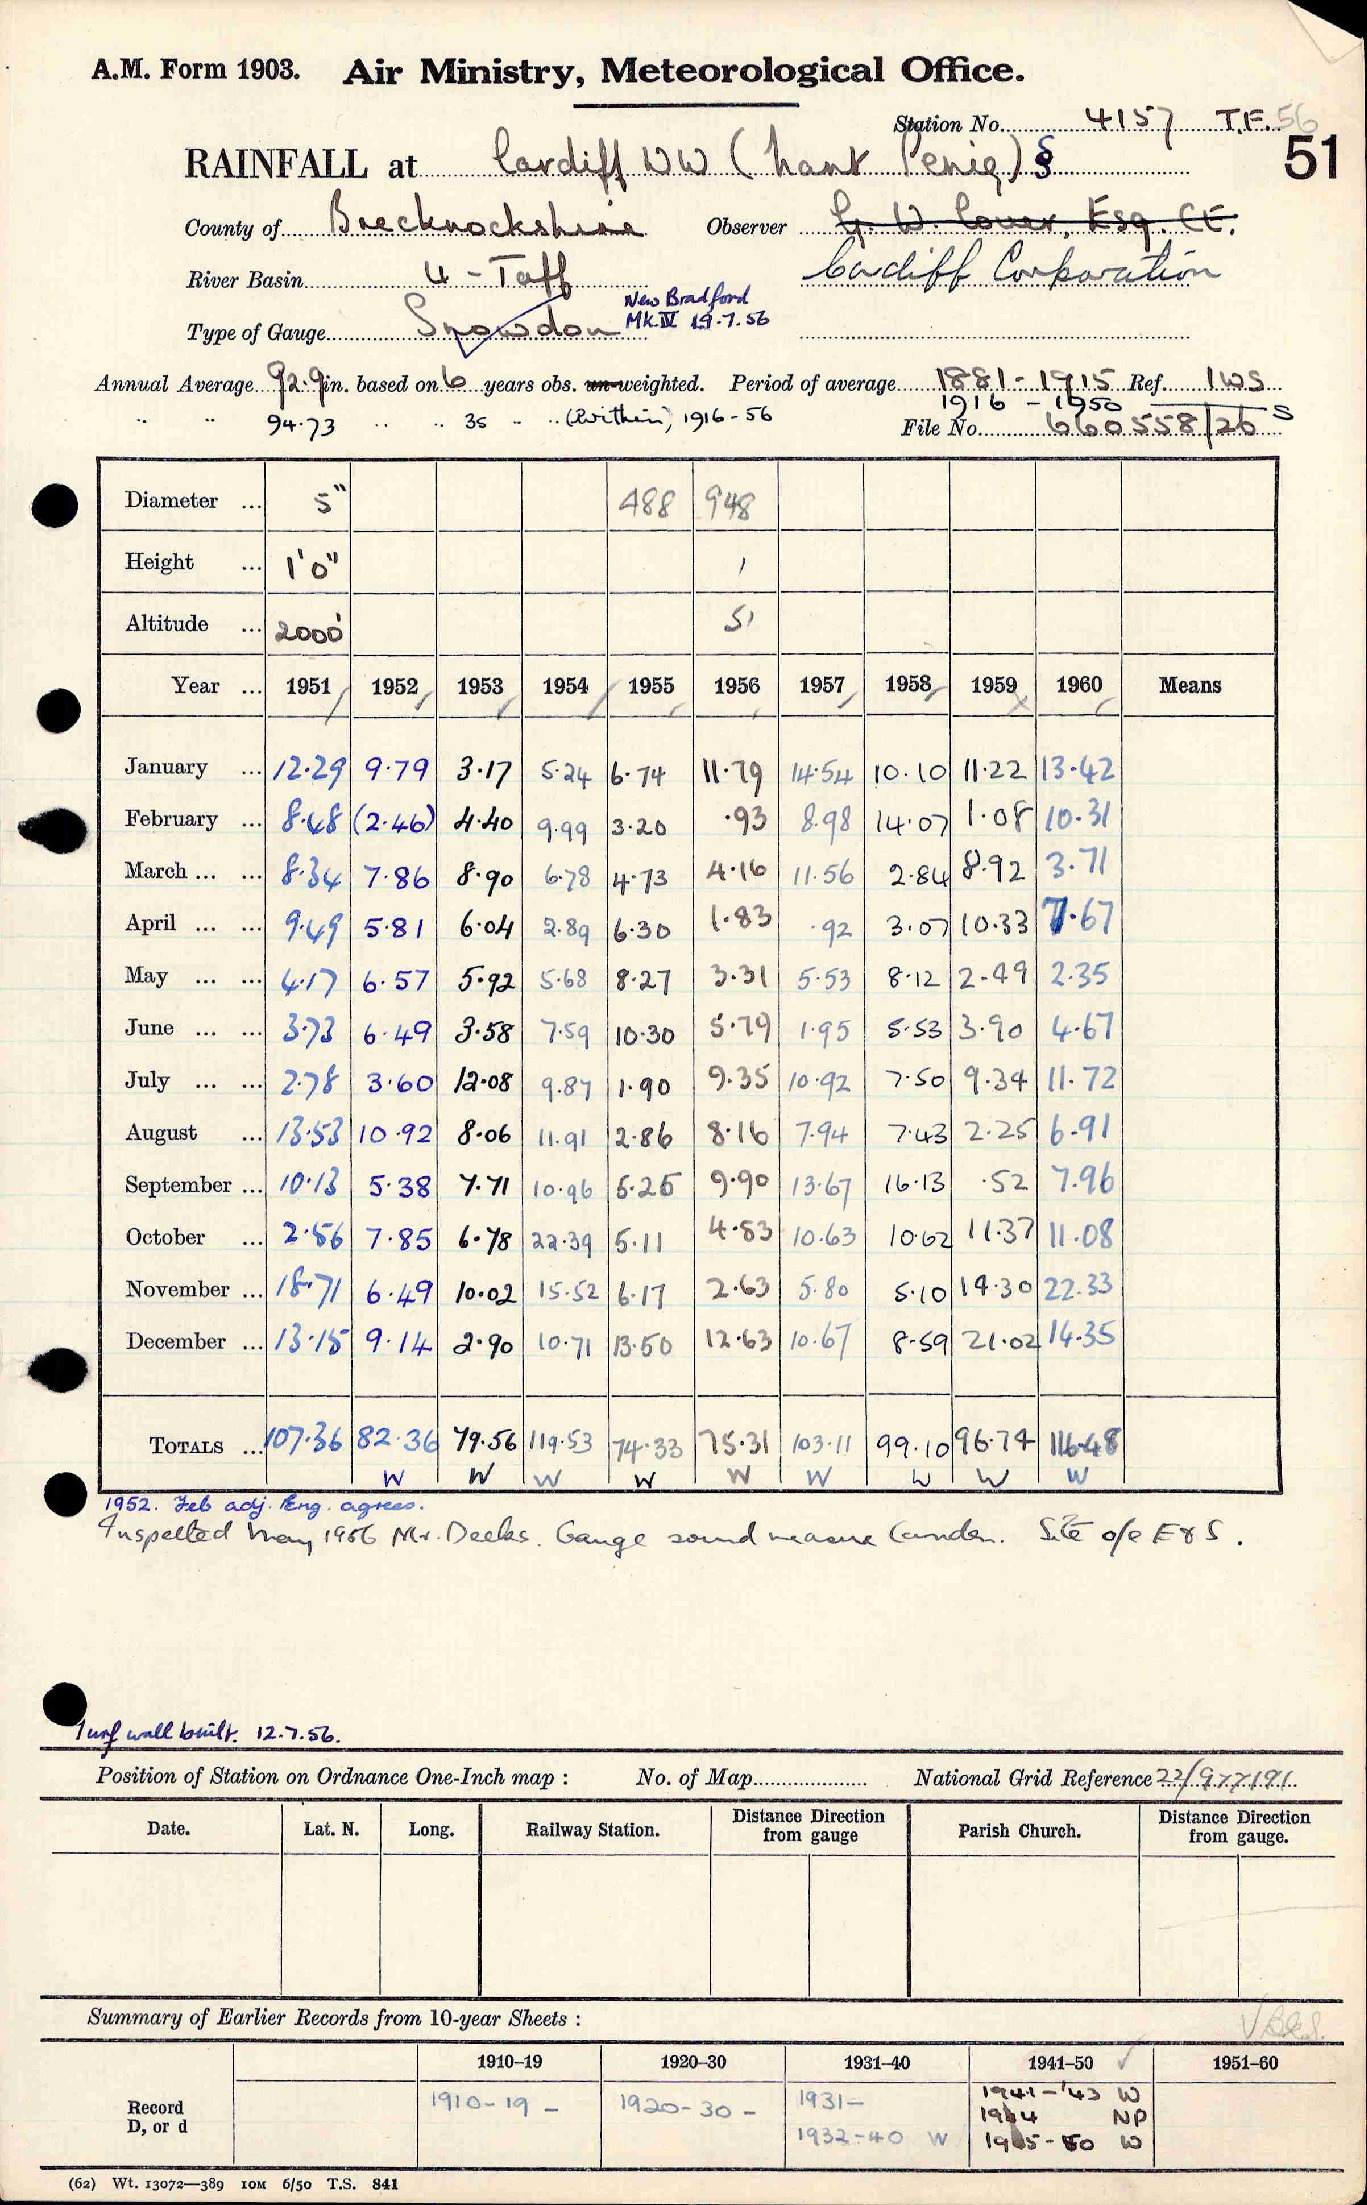 A.M. Form 1903. Air Ministry, Meteorological Office.
Station No. 4157 T.F. 56
51
RAINFALL at Cardiff WW (Nant Penig) §
County of Brecknockshire Observer G. W. Cover, Esq. CE.
River Basin 4 - Taff Cardiff Corporation
Type of Gauge Snowdon New Bradford Mk.IV 19.7.56
Annual Average 92.9 in. based on 6 years obs. un-weighted. Period of average 1881-1915 Ref. IWS
1916 - 1950
" " 94.73 " " 35 " " (Within) 1916-56 File No. 660558/26 S
Diameter ... 5" 488 948
Height ... 1'0" 1
Altitude ... 2000' 51
Year ... 1951 1952 1953 1954 1955 1956 1957 1958 1959 1960 Means
January ... 12.29 9.79 3.17 5.24 6.74 11.79 14.54 10.10 11.22 13.42
February ... 8.48 (2.46) 4.40 9.99 3.20 .93 8.98 14.07 1.08 10.31
March ... ... 8.34 7.86 8.90 6.78 4.73 4.16 11.56 2.84 8.92 3.71
April ... ... 9.49 5.81 6.04 2.89 6.30 1.83 .92 3.07 10.33 7.67
May ... ... 4.17 6.57 5.92 5.68 8.27 3.31 5.53 8.12 2.49 2.35
June ... ... 3.73 6.49 3.58 7.59 10.30 5.79 1.95 5.53 3.90 4.67
July ... ... 2.78 3.60 12.08 9.87 1.90 9.35 10.92 7.50 9.34 11.72
August ... 13.53 10.92 8.06 11.91 2.86 8.16 7.94 7.43 2.25 6.91
September ... 10.13 5.38 7.71 10.96 5.25 9.90 13.67 16.13 .52 7.96
October ... 2.56 7.85 6.78 22.39 5.11 4.83 10.63 10.62 11.37 11.08
November ... 18.71 6.49 10.02 15.52 6.17 2.63 5.80 5.10 14.30 22.33
December ... 13.15 9.14 2.90 10.71 13.50 12.63 10.67 8.59 21.02 14.35
TOTALS ... 107.36 82.36 79.56 119.53 74.33 75.31 103.11 99.10 96.74 116.48
W W W W W W W W W
1952. Feb adj. Eng. agrees.
Inspected May 1956 Mr. Deeks. Gauge sound measure Camden. Site o/e E & S.
Turf wall built. 12.7.56.
Position of Station on Ordnance One-Inch map : No. of Map National Grid Reference 22/977191
Date. Lat. N. Long. Railway Station. Distance Direction from gauge Parish Church. Distance Direction from gauge.
Summary of Earlier Records from 10-year Sheets :
1910–19 1920–30 1931–40 1941–50 1951–60
Record D, or d 1910-19 - 1920-30 - 1931- 1941-'43 W
1944 NP
1932-40 W 1945-50 W
(62) Wt. 13072—389 10M 6/50 T.S. 841